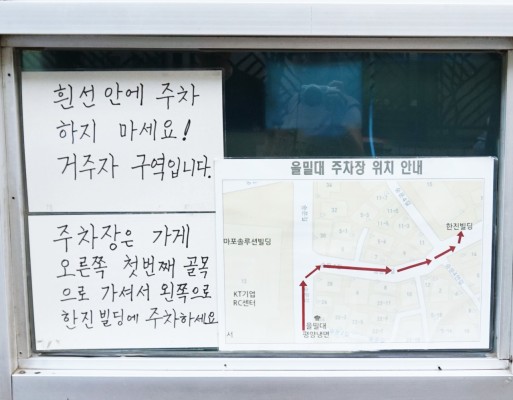 흰선 안에 주차
하지 마세요!
거주자 구역입니다.
주차장은 가게
오른쪽 첫번째 골목
으로 가셔서 왼쪽으로
한진빌딩에 주차하세요
을밀대 주차장 위치 안내
한진빌딩
마포솔루션빌딩
KT기업
RC센터
서
을밀대
평양냉면